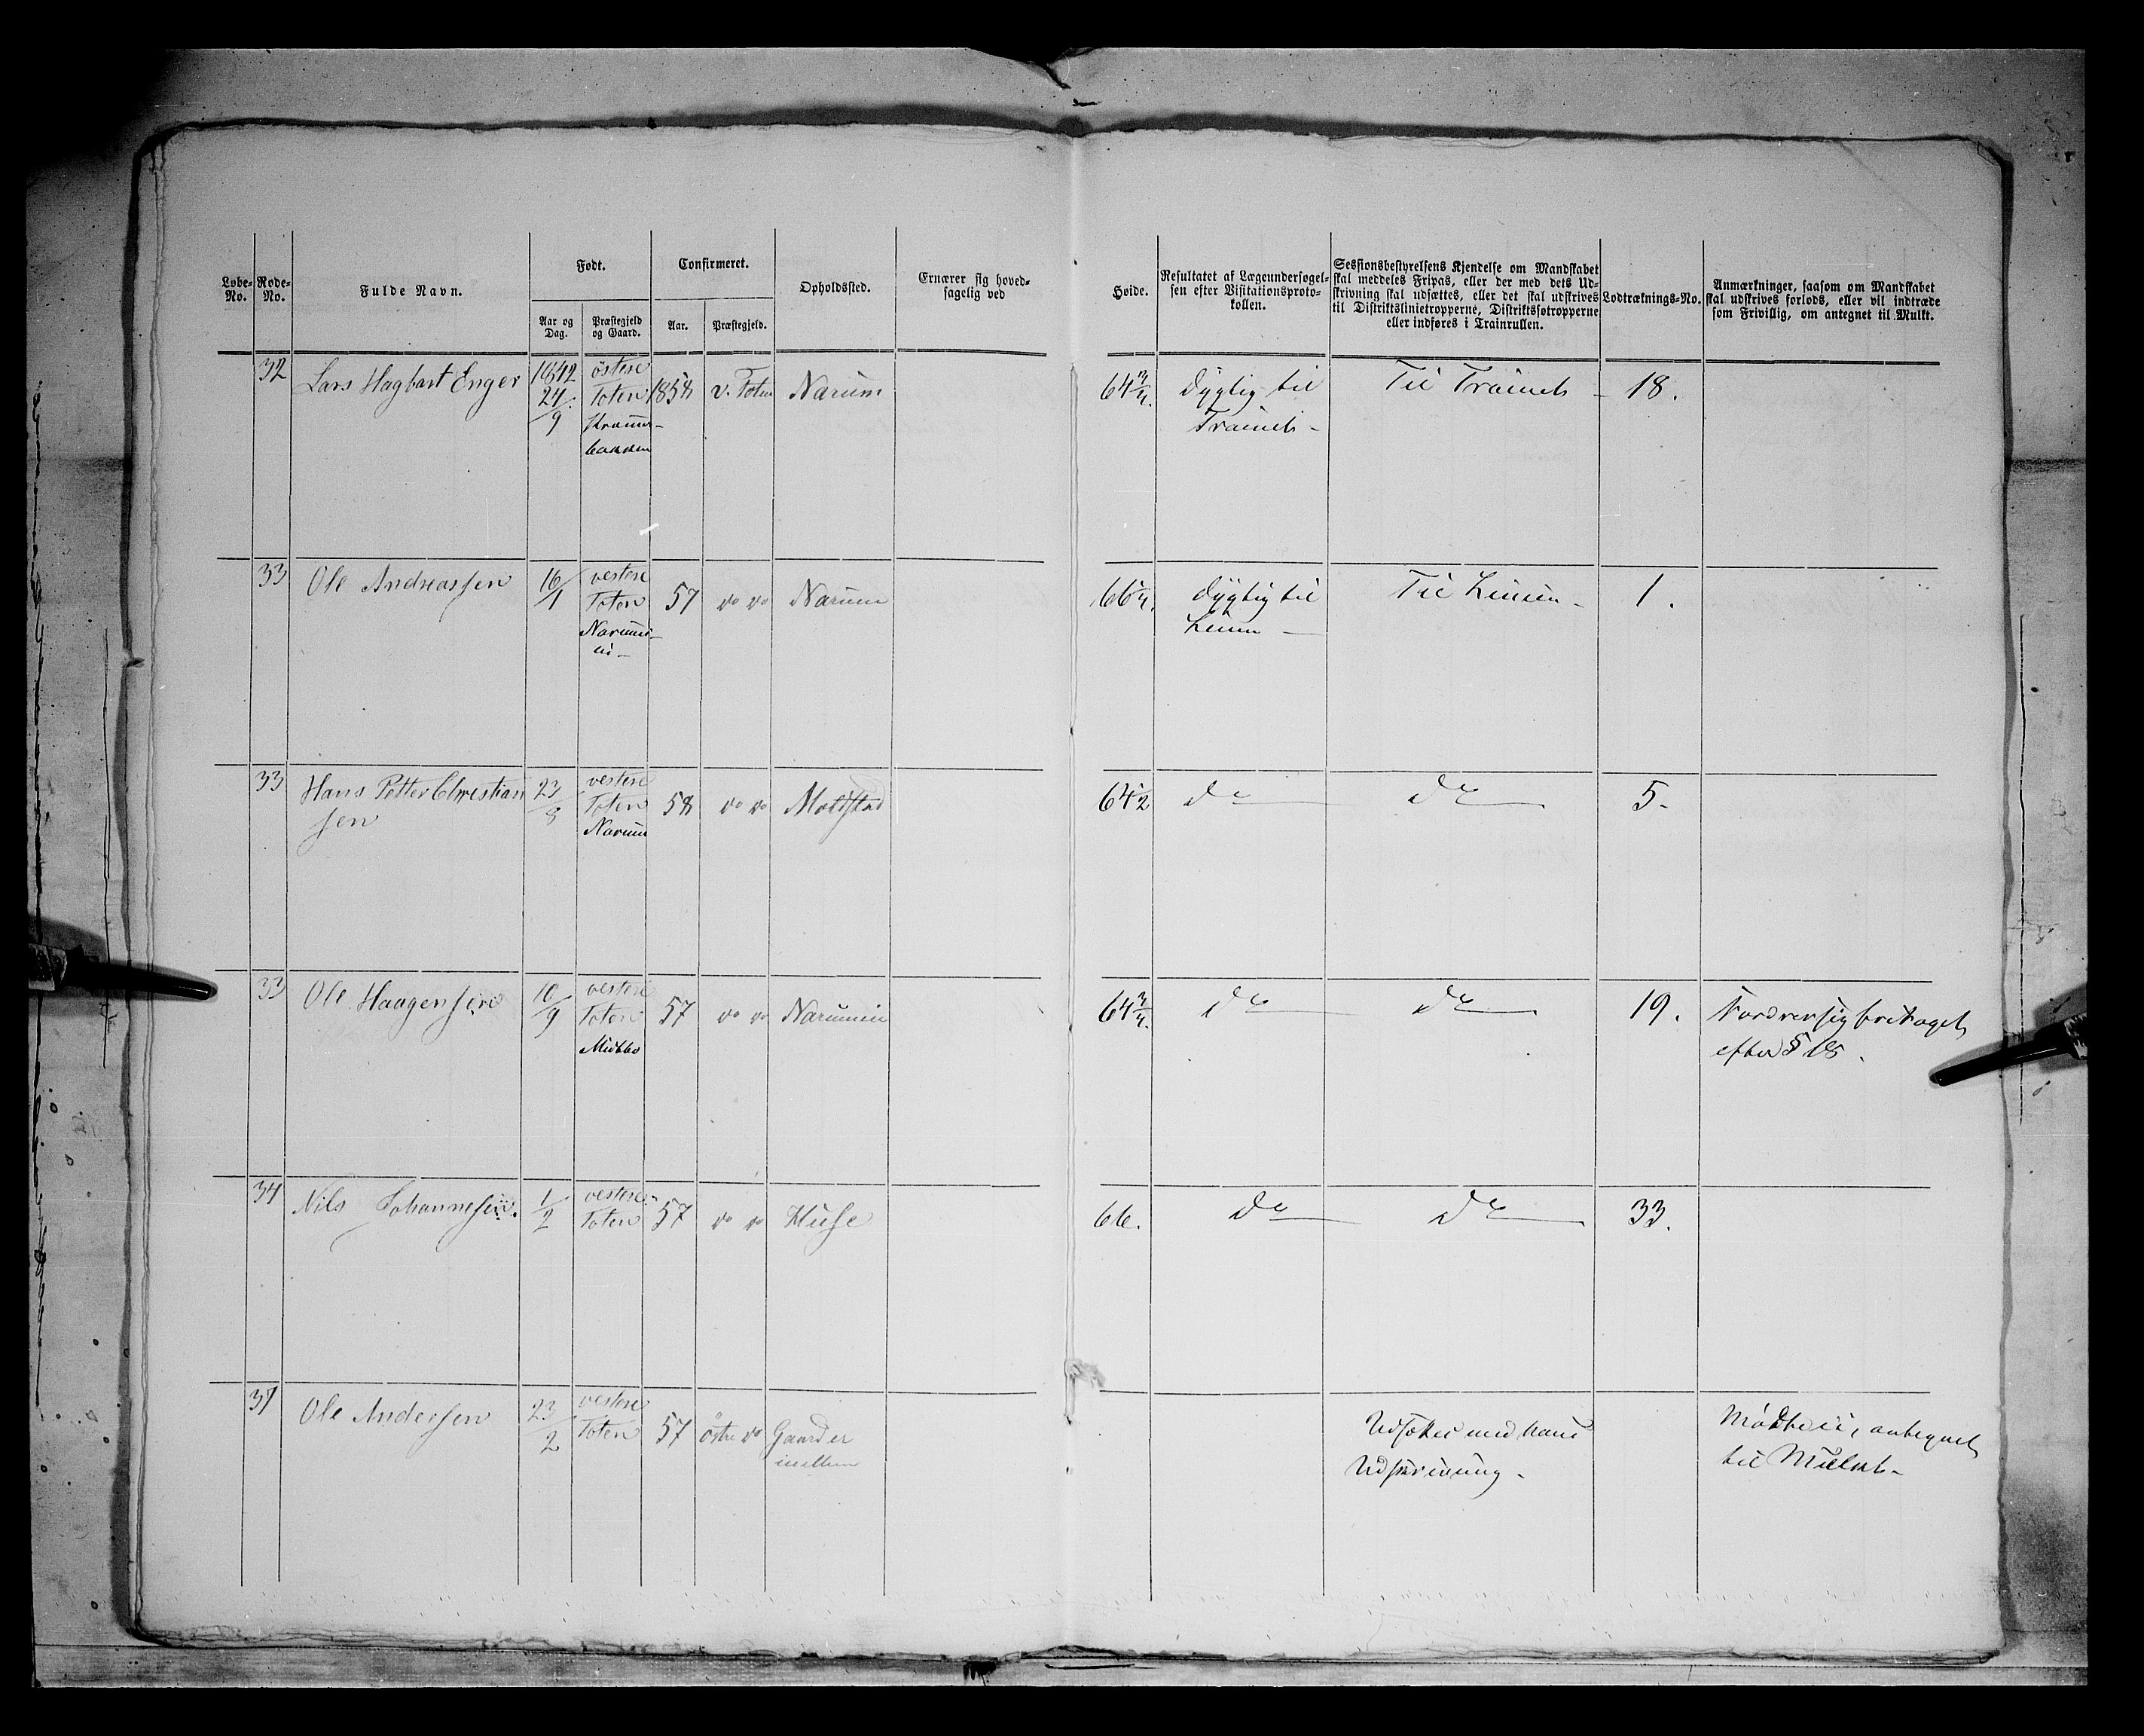 Løbe-No.
Rode-No.
Fulde Navn.
Født.
Aar og Dag.
Præstegjeld og Gaard.
Confirmeret.
Aar.
Præstegjeld.
Opholdssted.
Ernærer sig hoved-
sagelig ved
Høide.
Resultatet af Lægeundersøgel-
sen efter Visitationsproto-
kollen.
Sessionsbestyrelsens Kjendelse om Mandskabet
skal meddeles Fripas, eller der med dets Ud-
skrivning skal udsættes, eller det skal udskrives
til Distriktslinietropperne, Distriktssøtropperne
eller indføres i Trainrullen.
Lodtræknings-No.
Anmærkninger, saasom om Mandskabet
skal udskrives forlods, eller vil indtræde
som Frivillig, om antegnet til Mulkt.
32 Lars Hagbart Enger 1842 24/9 östere Toten 1858 v. Toten Narum 64 3/4. Dygtig til Trainet - Til Trainet - 18.
33 Ole Andreassen 16/1 vestere Toten 57 do do Narum 66 1/4. Dygtig til Linien - Til Linien - 1.
33 Hans Petter Christian
sen 23/8 vestere Toten Narum 58 do do Moldstad 64 1/2 do do 5.
33 Ole Haagensen 10/9 vestere Toten 57 do do 64 3/4. do do 19. efter § 18.
34 Nils Johannesen. 1/2 vestere Toten 57 do do Huse 66. do do 33.
37 Ole Andersen 23/2 vestere Toten 57 östre do Gaarder Udsættes med hans
Udskrivning - antegnet
til Mulkt -